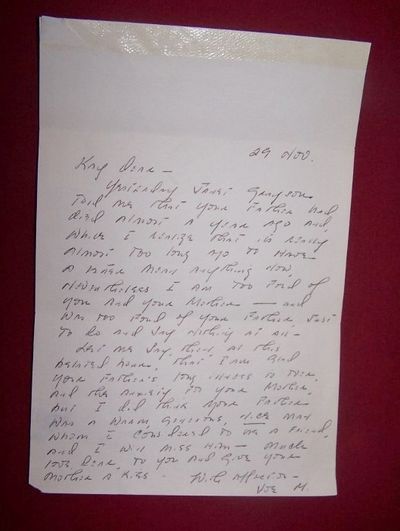 29 Nov.
Kay dear —
Yesterday Janet Grayson
told me that your Father had
died almost a year ago and,
while I realize that it's really
almost too long ago to have
a letter mean anything now,
nevertheless I am too fond of
you and your Mother — and
was too fond of your Father just
to go and say nothing at all —
Let me say, then, at this
belated hour, that I am
your Father's long is over,
and the anxiety for your Mother,
but I did think your Father
was a warm, gracious, nice man
whom I considered to be a friend,
and I will miss him — much
love dear, to you and give your
Mother a kiss. With affection —
Joe M.